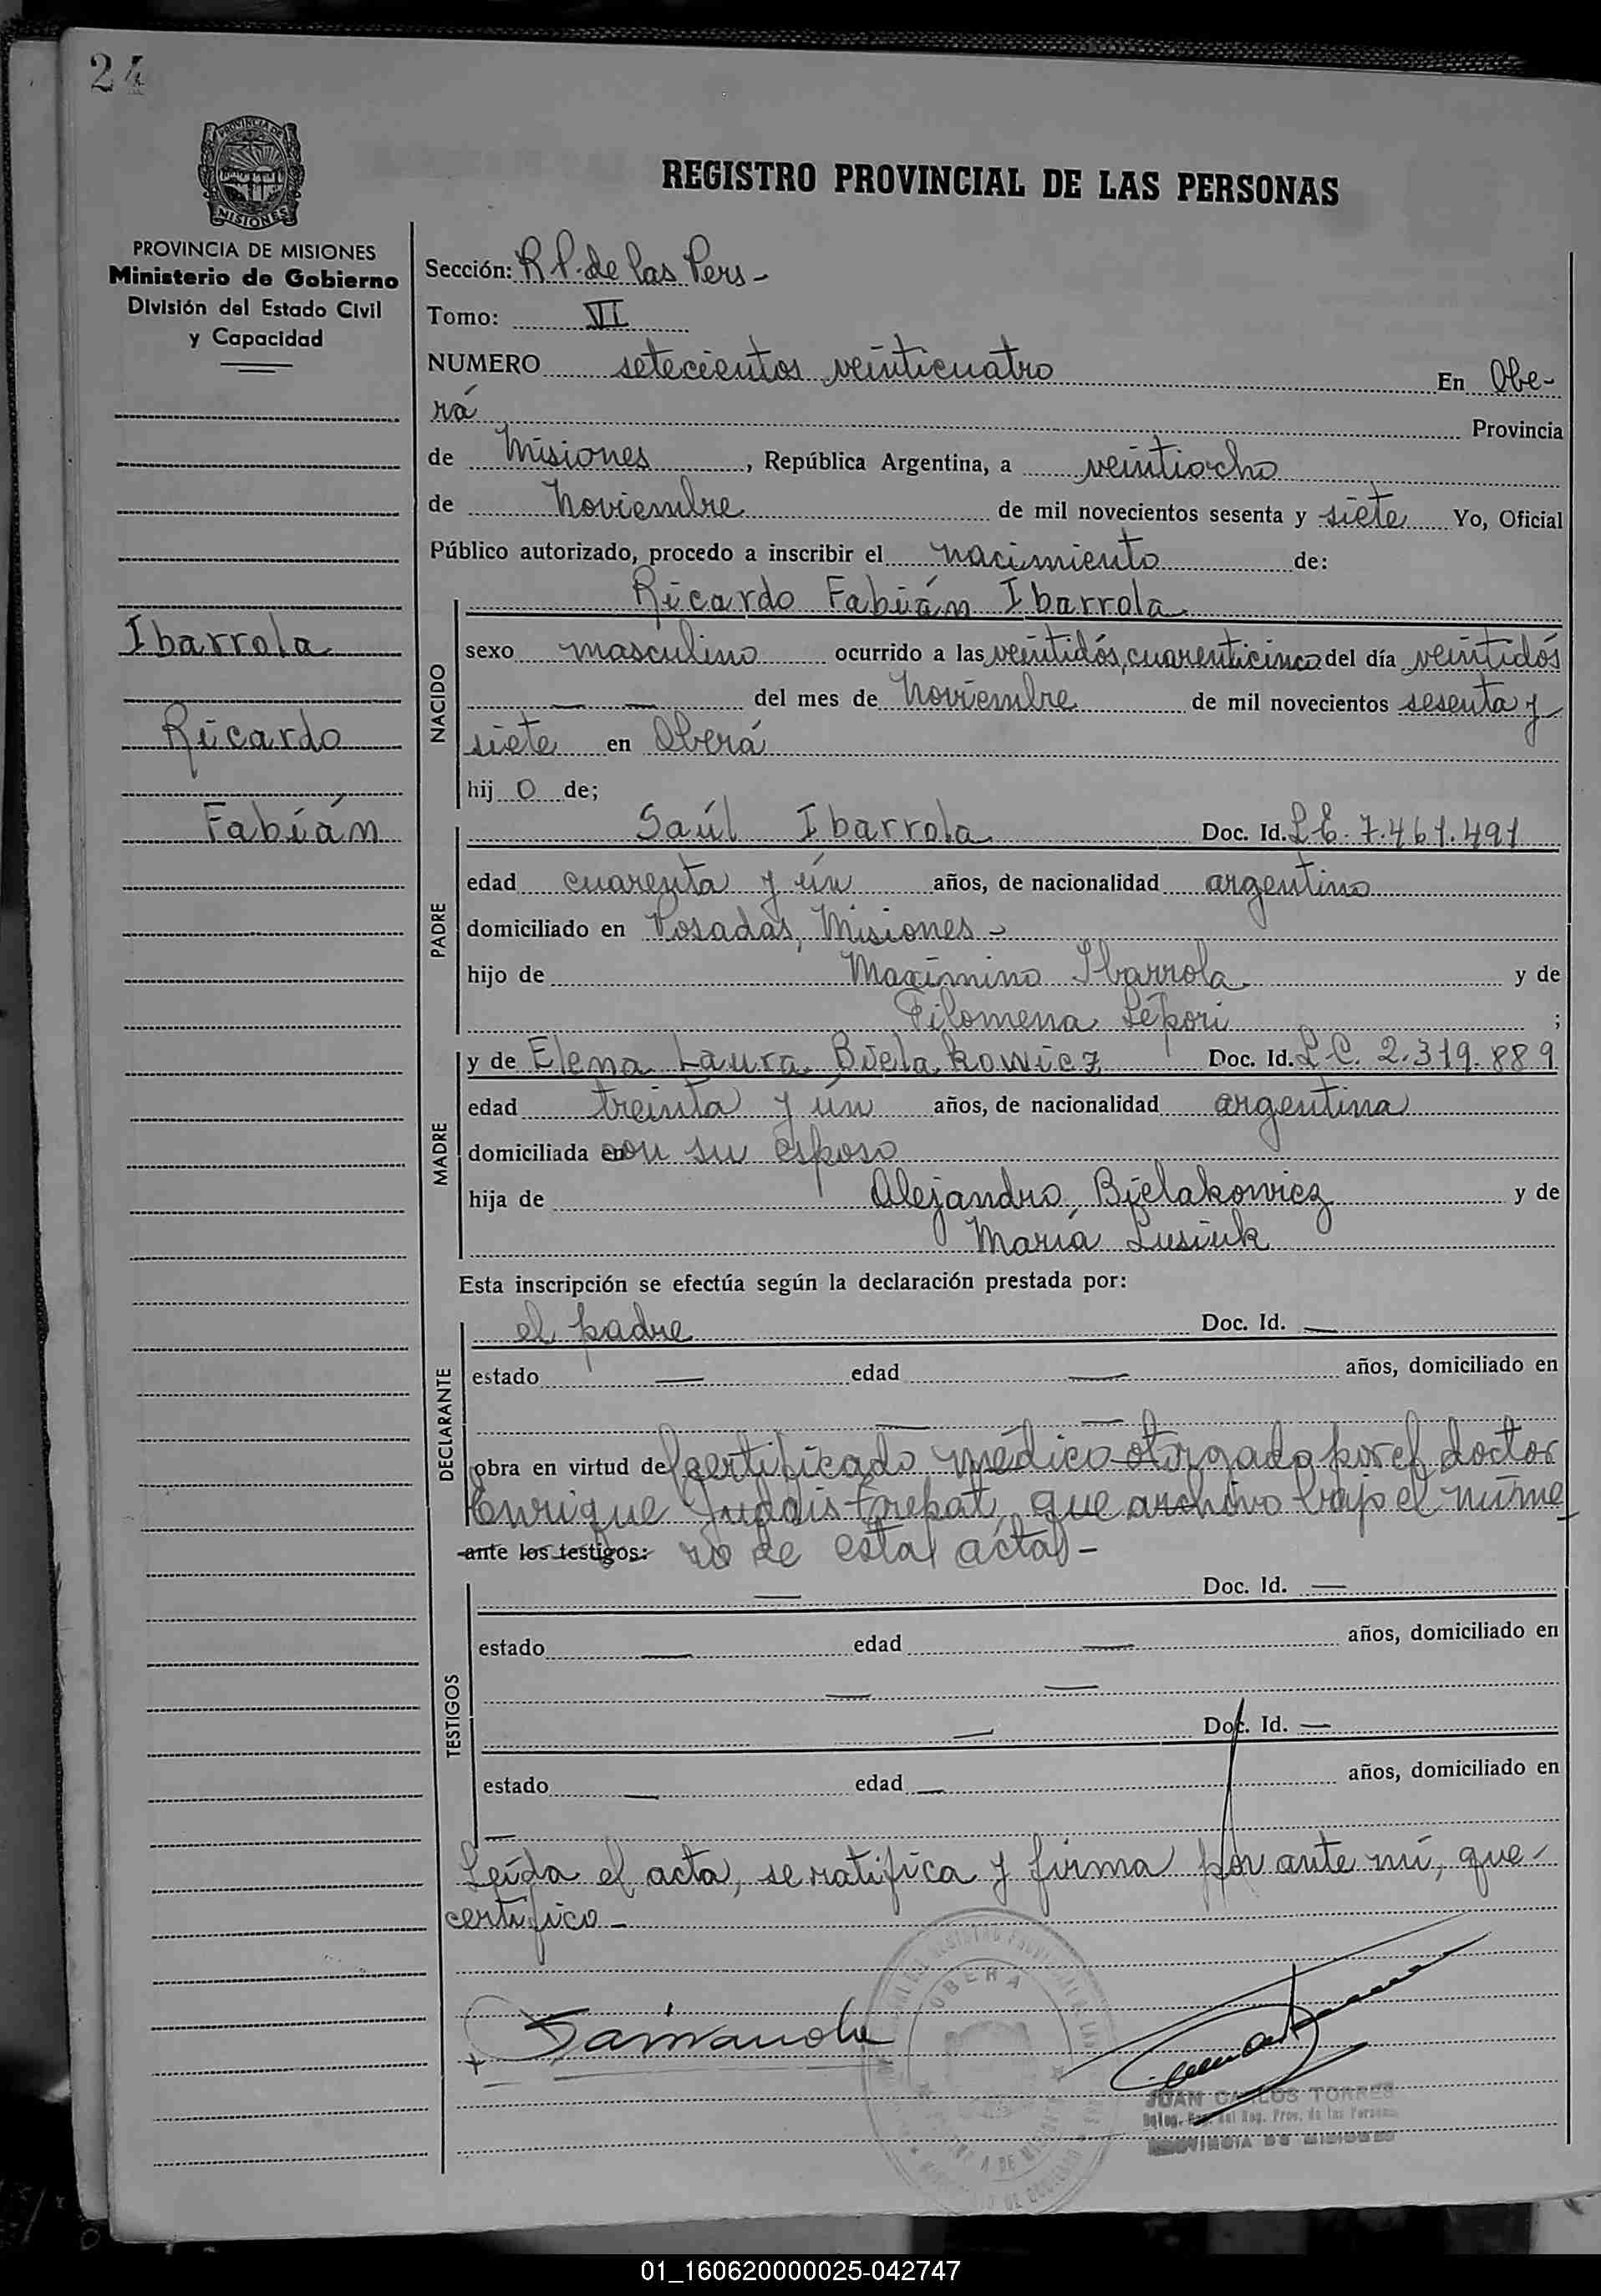 24
PROVINCIA DE
MISIONES
REGISTRO PROVINCIAL DE LAS PERSONAS
PROVINCIA DE MISIONES
Ministerio de Gobierno
División del Estado Civil
y Capacidad
Ibarrola
Ricardo
Fabián
Sección: R.P. de las Pers -
Tomo: VI
NUMERO setecientos veinticuatro En Obe-
rá Provincia
de Misiones, República Argentina, a veintiocho
de Noviembre de mil novecientos sesenta y siete Yo, Oficial
Público autorizado, procedo a inscribir el nacimiento de:
Ricardo Fabián Ibarrola
NACIDO
sexo masculino ocurrido a las veintidós, cuarenticinco del día veintidós
— — del mes de Noviembre de mil novecientos sesenta y
siete en Oberá
hij o de;
PADRE
Saúl Ibarrola Doc. Id. L.E. 7.461.491
edad cuarenta y ún años, de nacionalidad argentino
domiciliado en Posadas, Misiones -
hijo de Maximino Ibarrola y de
Filomena Lépori ;
MADRE
y de Elena Laura Bielakowicz Doc. Id. L.C. 2.319.889
edad treinta y ún años, de nacionalidad argentina
domiciliada en con su esposo
hija de Alejandro Bielakowicz y de
María Lusiuk
Esta inscripción se efectúa según la declaración prestada por:
DECLARANTE
el padre Doc. Id. —
estado — edad — años, domiciliado en
— —
obra en virtud del certificado médico otorgado por el doctor
Enrique que archivo bajo el núme-
ante los testigos: ro de esta acta -
TESTIGOS
— Doc. Id. —
estado — edad — años, domiciliado en
— —
— Doc. Id. —
estado — edad — años, domiciliado en
—
Leída el acta, se ratifica y firma por ante mí, que
certifico -
OBERA
JUAN CARLOS TORRES
del Reg. Prov. de las Personas
PROVINCIA DE MISIONES
01_160620000025-042747